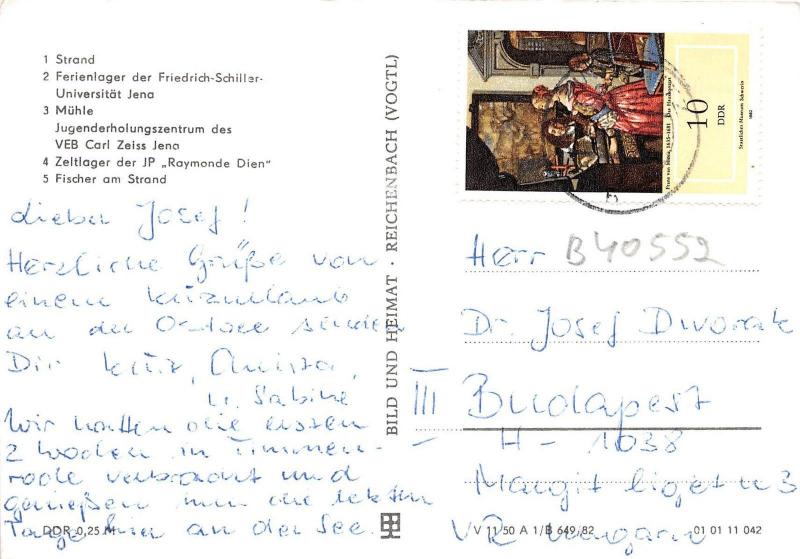 1 Strand
2 Ferienlager der Friedrich-Schiller-
Universität Jena
3 Mühle
Jugenderholungszentrum des
VEB Carl Zeiss Jena
4 Zeltlager der JP „Raymonde Dien"
5 Fischer am Strand
Lieber Josef!
Herzliche Grüße von
einem Kurzurlaub
an der Ostsee senden
Dir
u. Sabine
Wir hatten die ersten
2 Wochen in Timmen-
rode verbracht und
genießen nun die letzten
Tage hier an der See.
DDR 0,25 M
BILD UND HEIMAT · REICHENBACH (VOGTL)
10
DDR
Staatliches Museum Schwerin
1982
Frans van Mieris, 1635-1681
Herr B40552
Dr. Josef Dworak
III Budapest
H - 1038
Margit liget u 3
VR Ungarn
V 11 50 A 1/B 649/82
01 01 11 042